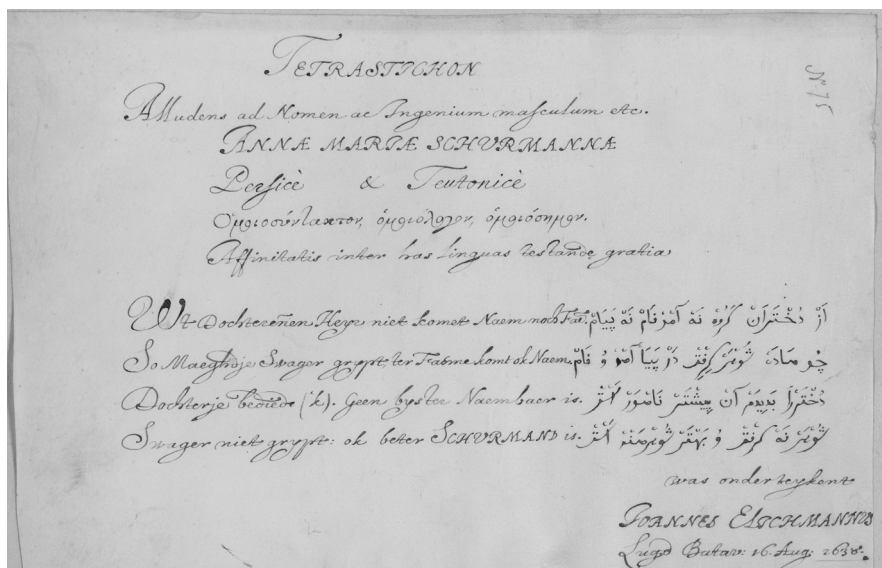 TETRASTICHON
Nº 75
Alludens ad Nomen ac Ingenium masculum etc.
ANNÆ MARIÆ SCHVRMANNÆ
Persicè & Teutonicè
Affinitatis inter has linguas testandę gratia
Wt Dochterenen Heyr niet komet Naem noch از دختران گروه نه آمد نام نه پیام
So Maeghdje Swager grypt, ter Faeme komt ok Naem. در پیا آمد و نام
Dochterje bediede (ik). Geen byster Naembaer is. دختررا بدیدم آن بیشتر نامور
Swager niet grypt: ok beter SCHVRMAND is. شوهر نه گرفت و بهتر
was onderteykent
JOANNES ELICHMANNVS
Lugd Batav: 16. Aug: 1638.